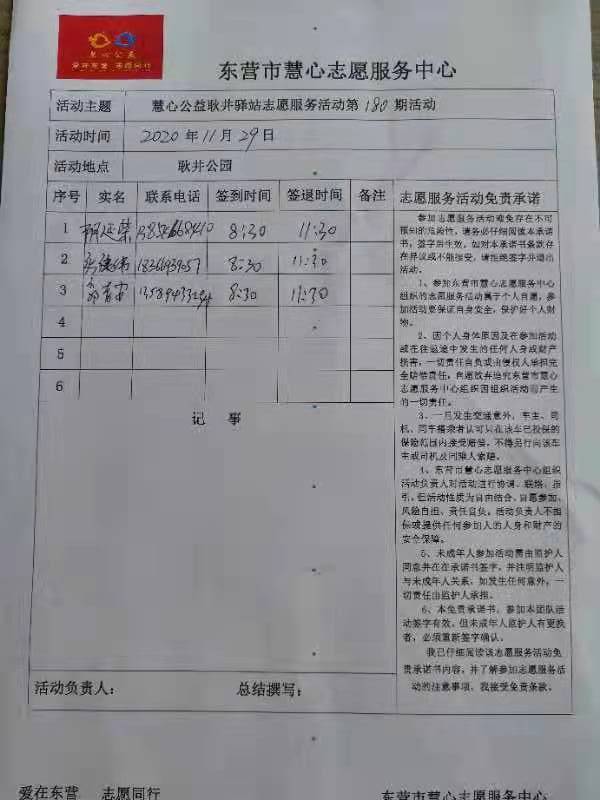 慧心公益
爱在东营 志愿同行
东营市慧心志愿服务中心
活动主题 慧心公益耿井驿站志愿服务活动第180期活动
活动时间 2020年11月29日
活动地点 耿井公园
序号 实名 联系电话 签到时间 签退时间 备注
1 8:30 11:30
2 8:30 11:30
3 8:30 11:30
4
5
6
记 事
活动负责人: 总结撰写:
志愿服务活动免责承诺
参加志愿服务活动难免存在不可
预知的危险性,请务必仔细阅读本承诺
书,签字后生效。如对本承诺书条款存
在异议或不能接受,请拒绝签字并退出
活动。
1、参加东营市慧心志愿服务中心
组织的志愿服务活动属于个人自愿,参
加活动要保证自身安全,保护好个人财
物。
2、因个人身体原因及在参加活动
或在往返途中发生的任何人身或财产
损害,一切责任自负或由侵权人承担完
全赔偿责任,自愿放弃追究东营市慧心
志愿服务中心组织因组织活动而产生
的一切责任。
3、一旦发生交通意外,车主、司
机、同车搭乘者认可只在该车已投保的
保险范围内接受赔偿,不得另行向该车
车主或司机及同乘人索赔。
4、东营市慧心志愿服务中心组织
活动负责人对活动进行协调、联络、指
引,但活动性质为自由结合、自愿参加、
风险自担、责任自负。活动负责人不担
保或提供任何参加人的人身和财产的
安全保障。
5、未成年人参加活动需由监护人
同意并在在承诺书签字,并注明监护人
与未成年人关系,如发生任何意外,一
切责任由监护人承担。
6、本免责承诺书,参加本团队活
动签字有效,但未成年人监护人有更换
者,必须重新签字确认。
我已仔细阅读该志愿服务活动免
责承诺书内容,并了解参加志愿服务活
动的注意事项,我接受免责条款。
爱在东营 志愿同行 东营市慧心志愿服务中心